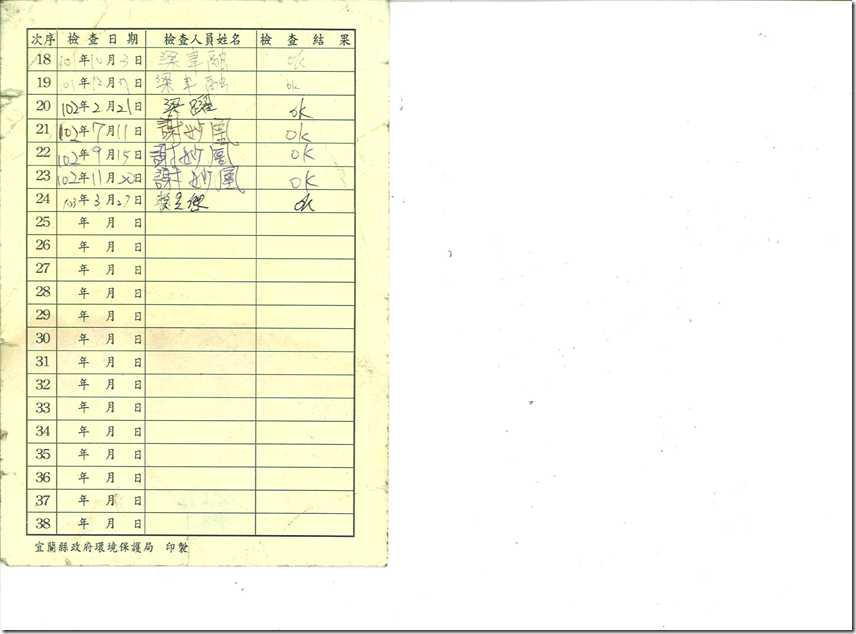 次序 檢查日期 檢查人員姓名 檢查結果
18 101年10月3日 ok
19 101年12月7日 ok
20 102年2月21日 ok
21 102年7月11日 謝妙鳳 ok
22 102年9月15日 謝妙鳳 ok
23 102年11月20日 謝妙鳳 ok
24 103年3月27日 ok
25 年 月 日
26 年 月 日
27 年 月 日
28 年 月 日
29 年 月 日
30 年 月 日
31 年 月 日
32 年 月 日
33 年 月 日
34 年 月 日
35 年 月 日
36 年 月 日
37 年 月 日
38 年 月 日
宜蘭縣政府環境保護局 印製